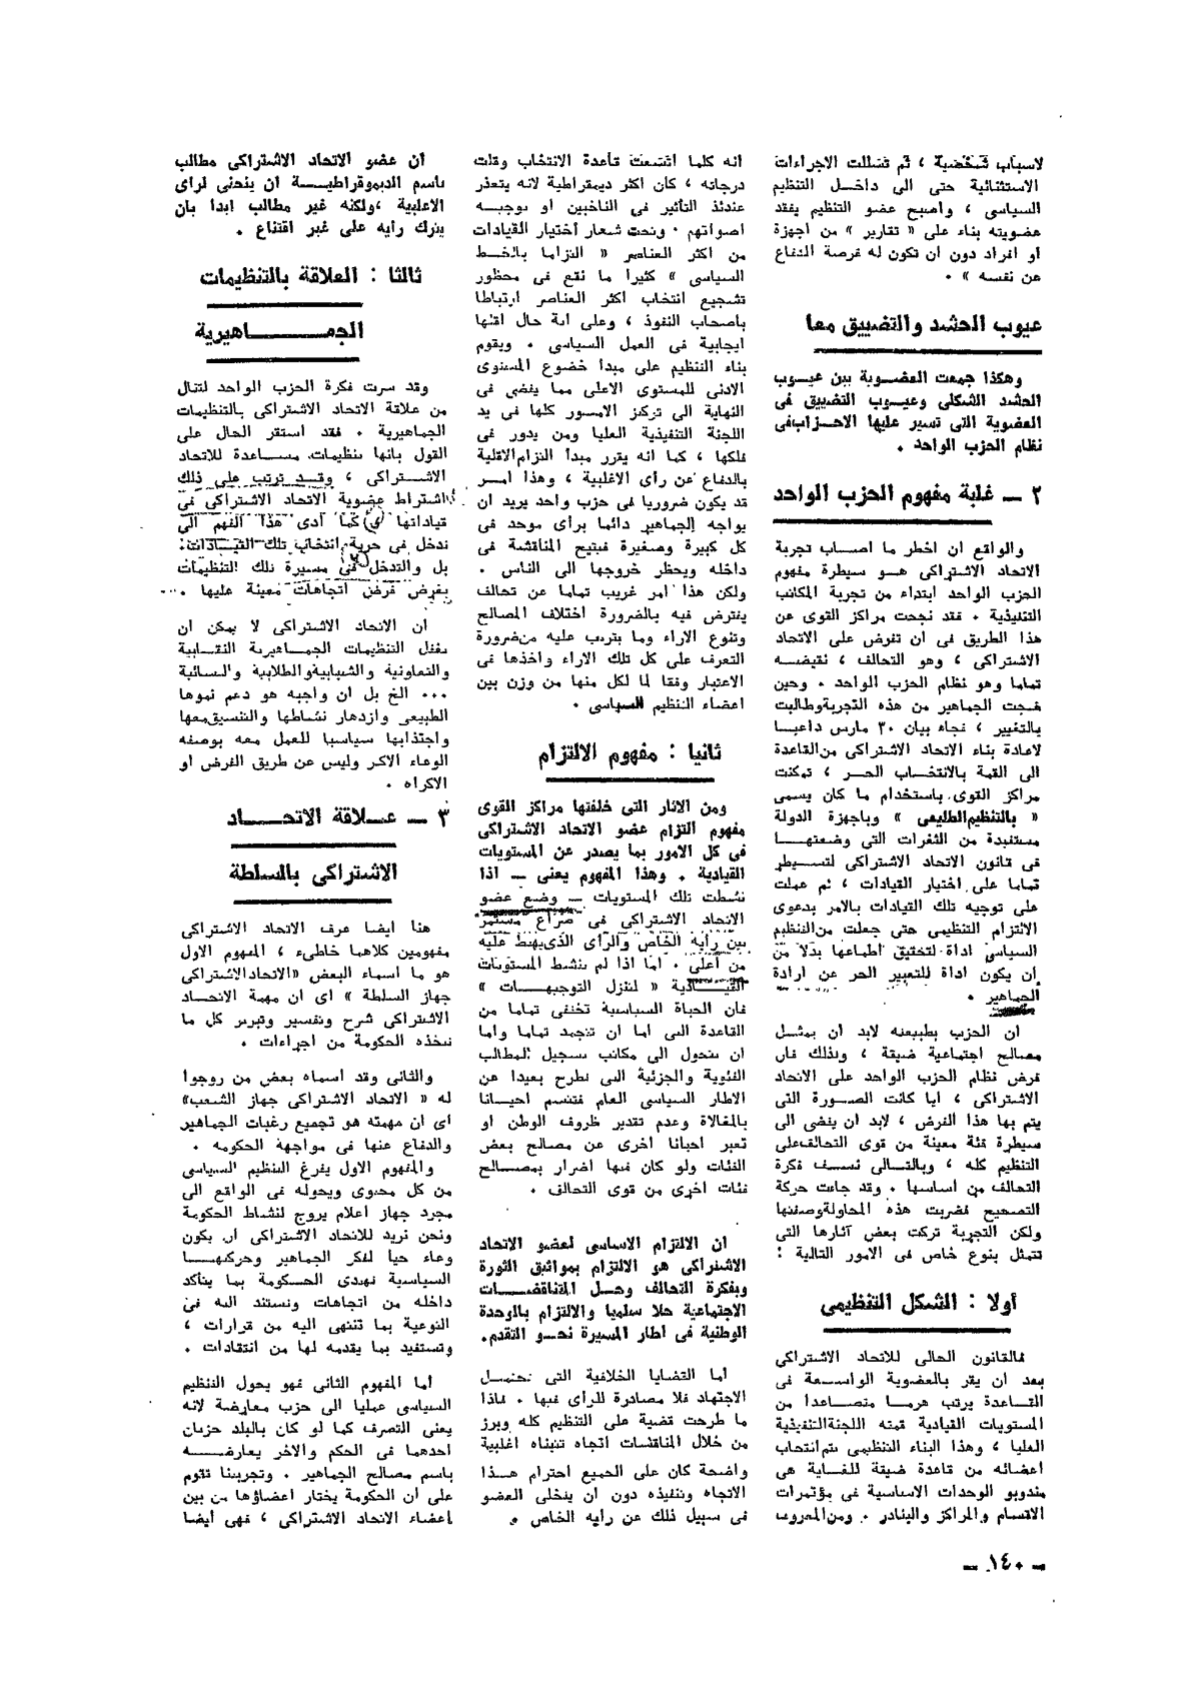 لاسباب شخصية ، ثم تسللت الاجراءات
الاستثنائية حتى الى داخل التنظيم
السياسى ، واصبح عضو التنظيم يفقد
عضويته بناء على « تقارير » من اجهزة
او افراد دون ان تكون له فرصة الدفاع
عن نفسه » .
عيوب الحشد والتضييق معا
وهكذا جمعت العضوية بين عيوب
الحشد الشكلى وعيوب التضييق فى
العضوية التى تسير عليها الاحزاب فى
نظام الحزب الواحد .
٢ ـ غلبة مفهوم الحزب الواحد
والواقع ان اخطر ما اصاب تجربة
الاتحاد الاشتراكى هو سيطرة مفهوم
الحزب الواحد ابتداء من تجربة المكاتب
التنفيذية . فقد نجحت مراكز القوى عن
هذا الطريق فى ان تفرض على الاتحاد
الاشتراكى ، وهو التحالف ، نقيضه
تماما وهو نظام الحزب الواحد . وحين
ضجت الجماهير من هذه التجربة وطالبت
بالتغيير ، فجاء بيان ٣٠ مارس داعيا
لاعادة بناء الاتحاد الاشتراكى من القاعدة
الى القمة بالانتخاب الحر ، تمكنت
مراكز القوى باستخدام ما كان يسمى
« بالتنظيم الطليعى » وباجهزة الدولة
مستفيدة من الثغرات التى وضعتها
فى قانون الاتحاد الاشتراكى لتسيطر
تماما على اختيار القيادات ، ثم عملت
على توجيه تلك القيادات بالامر بدعوى
الالتزام التنظيمى حتى جعلت من التنظيم
السياسى اداة لتحقيق اطماعها بدلا من
ان يكون اداة للتعبير الحر عن ارادة
الجماهير .
ان الحزب بطبيعته لابد ان يمثل
مصالح اجتماعية ضيقة ، ولذلك فان
فرض نظام الحزب الواحد على الاتحاد
الاشتراكى ، ايا كانت الصورة التى
يتم بها هذا الفرض ، لابد ان يفضى الى
سيطرة فئة معينة من قوى التحالف على
التنظيم كله ، وبالتالى نسف فكرة
التحالف من اساسها . وقد جاءت حركة
التصحيح فضربت هذه المحاولة وصفتها
ولكن التجربة تركت بعض آثارها التى
تتمثل بنوع خاص فى الامور التالية :
أولا : الشكل التنظيمى
فالقانون الحالى للاتحاد الاشتراكى
بعد ان يقر بالعضوية الواسعة فى
القاعدة يرتب هرما متصاعدا من
المستويات القيادية قمته اللجنة التنفيذية
العليا ، وهذا البناء التنظيمى يتم انتخاب
اعضائه من قاعدة ضيقة للغاية هى
مندوبو الوحدات الاساسية فى مؤتمرات
الاقسام والمراكز والبنادر . ومن المعروف
انه كلما اتسعت قاعدة الانتخاب وقلت
درجاته ، كان اكثر ديمقراطية لانه يتعذر
عندئذ التأثير فى الناخبين او توجيه
اصواتهم . وتحت شعار اختيار القيادات
من اكثر العناصر « التزاما بالخط
السياسى » كثيرا ما نقع فى محظور
تشجيع انتخاب اكثر العناصر ارتباطا
باصحاب النفوذ ، وعلى اية حال اقلها
ايجابية فى العمل السياسى . ويقوم
بناء التنظيم على مبدأ خضوع المستوى
الادنى للمستوى الاعلى مما يفضى فى
النهاية الى تركز الامور كلها فى يد
اللجنة التنفيذية العليا ومن يدور فى
فلكها ، كما انه يقرر مبدأ التزام الاقلية
بالدفاع عن رأى الاغلبية ، وهذا امر
قد يكون ضروريا فى حزب واحد يريد ان
يواجه الجماهير دائما برأى موحد فى
كل كبيرة وصغيرة فيتيح المناقشة فى
داخله ويحظر خروجها الى الناس .
ولكن هذا امر غريب تماما عن تحالف
يفترض فيه بالضرورة اختلاف المصالح
وتنوع الاراء وما يترتب عليه من ضرورة
التعرف على كل تلك الاراء واخذها فى
الاعتبار وفقا لما لكل منها من وزن بين
اعضاء التنظيم السياسى .
ثانيا : مفهوم الالتزام
ومن الاثار التى خلفتها مراكز القوى
مفهوم التزام عضو الاتحاد الاشتراكى
فى كل الامور بما يصدر عن المستويات
القيادية . وهذا المفهوم يعنى ـ اذا
نشطت تلك المستويات ـ وضع عضو
الاتحاد الاشتراكى فى صراع مستمر
بين رأيه الخاص والرأى الذى يهبط عليه
من أعلى . اما اذا لم تنشط المستويات
القيادية « لتنزل التوجيهات »
فان الحياة السياسية تختفى تماما من
القاعدة التى اما ان تتجمد تماما واما
ان تتحول الى مكاتب تسجيل المطالب
الفئوية والجزئية التى تطرح بعيدا عن
الاطار السياسى العام فتتسم احيانا
بالمغالاة وعدم تقدير ظروف الوطن او
تعبر احيانا اخرى عن مصالح بعض
الفئات ولو كان فيها اضرار بمصالح
فئات اخرى من قوى التحالف .
ان الالتزام الاساسى لعضو الاتحاد
الاشتراكى هو الالتزام بمواثيق الثورة
وبفكرة التحالف وحل المتناقضات
الاجتماعية حلا سلميا والالتزام بالوحدة
الوطنية فى اطار المسيرة نحو التقدم.
أما القضايا الخلافية التى تحتمل
الاجتهاد فلا مصادرة للرأى فيها . فاذا
ما طرحت قضية على التنظيم كله وبرز
من خلال المناقشات اتجاه تتبناه اغلبية
واضحة كان على الجميع احترام هذا
الاتجاه وتنفيذه دون ان يتخلى العضو
فى سبيل ذلك عن رأيه الخاص .
ان عضو الاتحاد الاشتراكى مطالب
باسم الديموقراطية ان ينحنى لرأى
الاغلبية ،ولكنه غير مطالب ابدا بان
يترك رأيه على غير اقتناع .
ثالثا : العلاقة بالتنظيمات
الجماهيرية
وقد سرت فكرة الحزب الواحد لتنال
من علاقة الاتحاد الاشتراكى بالتنظيمات
الجماهيرية . فقد استقر الحال على
القول بانها تنظيمات مساعدة للاتحاد
الاشتراكى ، وقد ترتب على ذلك
اشتراط عضوية الاتحاد الاشتراكى فى
قياداتها كما أدى هذا الفهم الى
تدخل فى حرية انتخاب تلك القيادات
بل والتدخل فى مسيرة تلك التنظيمات
بغرض فرض اتجاهات معينة عليها . ..
ان الاتحاد الاشتراكى لا يمكن ان
يغفل التنظيمات الجماهيرية النقابية
والتعاونية والشبابية والطلابية والنسائية
... الخ بل ان واجبه هو دعم نموها
الطبيعى وازدهار نشاطها والتنسيق معها
واجتذابها سياسيا للعمل معه بوصفه
الوعاء الاكبر وليس عن طريق الفرض او
الاكراه .
٣ ـ علاقة الاتحاد
الاشتراكى بالسلطة
هنا ايضا عرف الاتحاد الاشتراكى
مفهومين كلاهما خاطىء ، المفهوم الاول
هو ما اسماه البعض «الاتحاد الاشتراكى
جهاز السلطة » اى ان مهمة الاتحاد
الاشتراكى شرح وتفسير وتبرير كل ما
تتخذه الحكومة من اجراءات .
والثانى وقد اسماه بعض من روجوا
له « الاتحاد الاشتراكى جهاز الشعب»
اى ان مهمته هو تجميع رغبات الجماهير
والدفاع عنها فى مواجهة الحكومة .
والمفهوم الاول يفرغ التنظيم السياسى
من كل محتوى ويحوله فى الواقع الى
مجرد جهاز اعلام يروج لنشاط الحكومة
ونحن نريد للاتحاد الاشتراكى ان يكون
وعاء حيا لفكر الجماهير وحركتها
السياسية تهتدى الحكومة بما يتأكد
داخله من اتجاهات وتستند اليه فى
النوعية بما تنتهى اليه من قرارات ،
وتستفيد بما يقدمه لها من انتقادات .
أما المفهوم الثانى فهو يحول التنظيم
السياسى عمليا الى حزب معارضة لانه
يعنى التصرف كما لو كان بالبلد حزبان
احدهما فى الحكم والاخر يعارضه
باسم مصالح الجماهير . وتجربتنا تقوم
على ان الحكومة يختار اعضاؤها من بين
اعضاء الاتحاد الاشتراكى ، فهى ايضا
ـ ١٤٠ ـ